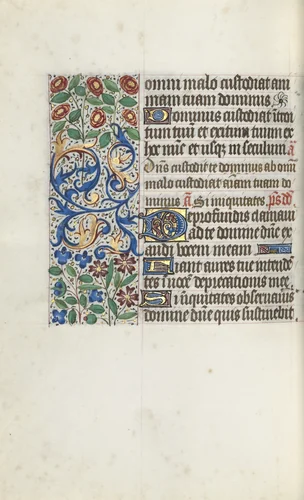 omni malo custodiat ani
mam tuam dominus
Dominus custodiat introi
tum tuũ et exitum tuum ex
hoc nunc et usq in seculum A
Dñs custodit te dominus ab omni
malo custodiat aĩam tuam do
minus A Si iniquitates ps dd
De profundis clamaui
ad te domine dñe ex
audi vocem meam
Fiant aures tue intenden
tes in uocẽ deprecationis mee
Si iniquitates obseruaueris
domine dñe quis sustinebit